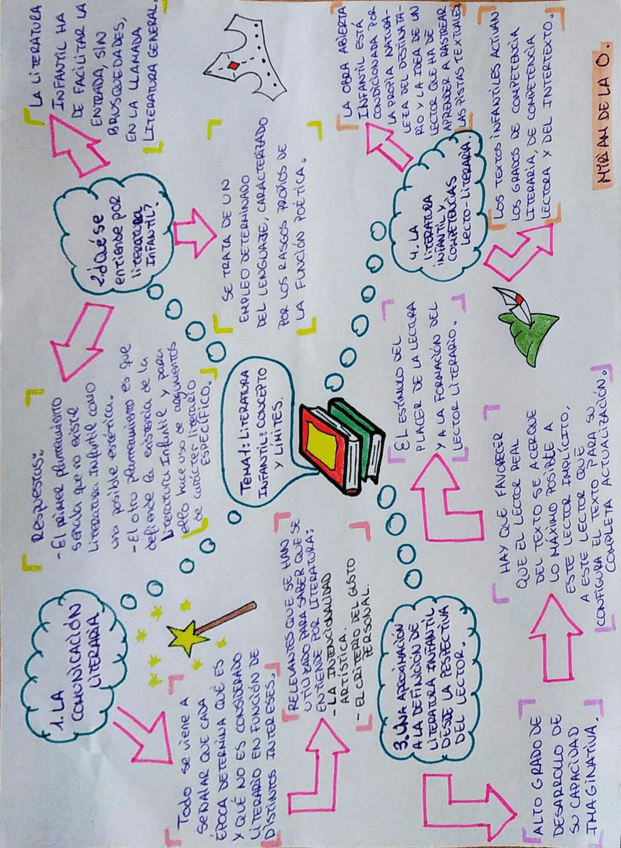 TEMA 1: LITERATURA
INFANTIL: CONCEPTO
Y LIMITES.
1. LA
COMUNICACIÓN
LITERARIA.
Todo se viene a
señalar que cada
ÉPOCA DETERMINA QUÉ ES
Y QUÉ NO ES CONSIDERADO
LITERARIO EN FUNCIÓN DE
DISTINTOS INTERESES.
RELEVANTES QUE SE HAN
UTILIZADO PARA SABER QUE SE
ENTIENDE POR LITERATURA:
- LA INTENCIONALIDAD
ARTÍSTICA.
- EL CRITERIO DEL GUSTO
PERSONAL.
2. ¿Qué se
entiende por
literatura
INFANTIL?
Respuestas:
- El primer planteamiento
señala que no existe
Literatura infantil como
una posible estética.
- El otro planteamiento es que
defiende la existencia de la
literatura infantil y para
ello hace uso de argumentos
de carácter literario
ESPECÍFICO.
SE TRATA DE UN
EMPLEO DETERMINADO
DEL LENGUAJE, CARACTERIZADO
POR LOS RASGOS PROPIOS DE
LA FUNCIÓN POÉTICA.
LA LITERATURA
INFANTIL HA
DE FACILITAR LA
ENTRADA, SIN
BRUSQUEDADES,
EN LA LLAMADA
LITERATURA GENERAL.
3. UNA APROXIMACIÓN
A LA DEFINICIÓN DE
LITERATURA INFANTIL
DESDE LA PESPECTIVA
DEL LECTOR.
ALTO GRADO DE
DESARROLLO DE
SU CAPACIDAD
IMAGINATIVA.
HAY QUE FAVORECER
QUE EL LECTOR REAL
DEL TEXTO SE ACERQUE
LO MÁXIMO POSIBLE A
ESTE LECTOR IMPLÍCITO,
A ESTE LECTOR QUE
CONFIGURA EL TEXTO PARA SU
COMPLETA ACTUALIZACIÓN.
EL ESTÍMULO DEL
PLACER DE LA LECTURA
Y A LA FORMACIÓN DEL
LECTOR LITERARIO.
4. LA
LITERATURA
INFANTIL Y
COMPETENCIAS
LECTO-LITERARIA.
LA OBRA ABIERTA
INFANTIL ESTÁ
CONDICIONADA POR
LA PROPIA NATURA-
LEZA DEL DESTINATA-
RIO Y LA IDEA DE UN
LECTOR QUE HA DE
APRENDER A RASTREAR
LAS PISTAS TEXTUALES.
LOS TEXTOS INFANTILES ACTIVAN
LOS GRADOS DE COMPETENCIA
LITERARIA, DE COMPETENCIA
LECTORA Y DEL INTERTEXTO.
MIRIAM DE LA O.